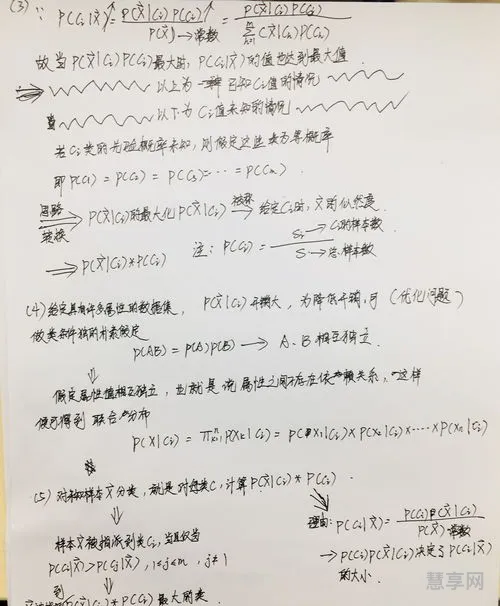 (3) ∵ P(Ci|X)↑ = P(X|Ci)P(Ci)↑ / P(X)→常数 = P(X|Ci)P(Ci) / Σ C(X|Ci)P(Ci)
故当P(X|Ci)P(Ci)最大时, P(Ci|X)的值也达到最大值
以上为一种已知Ci值的情况
以下为Ci值未知的情况
若Ci类的先验概率未知, 则假定这些类为等概率
即P(C1) = P(C2) = P(C3) = … = P(Cm)
思路转换 ⇒ P(X|Ci)的最大化P(X|Ci) 被称 → 给定Ci时, X的似然度
⇒ P(X|Ci)*P(Ci) 注: P(Ci) = Si→Ci的样本数 / S→总样本数
(4) 给定具有许多属性的数据集, P(X|Ci)开销大, 为降低开销, 可 (优化问题)
做类条件独立的朴素假定
P(AB) = P(A)P(B) → A、B相互独立.
假定属性值相互独立, 也就是说属性之间不存在依赖关系, 这样
便可得到联合分布
P(X|Ci) = π P(Xk|Ci) = P(X1|Ci) × P(X2|Ci) × … × P(Xn|Ci)
(5) 对未知样本X分类, 就是对每类Ci, 计算P(X|Ci) * P(Ci).
样本X被指派到类Ci, 当且仅当
P(Ci|X) > P(Cj|X), 1≤j≤m, j≠i
到
P(X|Ci) * P(Ci) 最大的类
理由: P(Ci|X) = P(Ci)P(X|Ci) / P(X) 常数
→ P(Ci)P(X|Ci)决定了P(Ci|X)
的大小.
慧享网